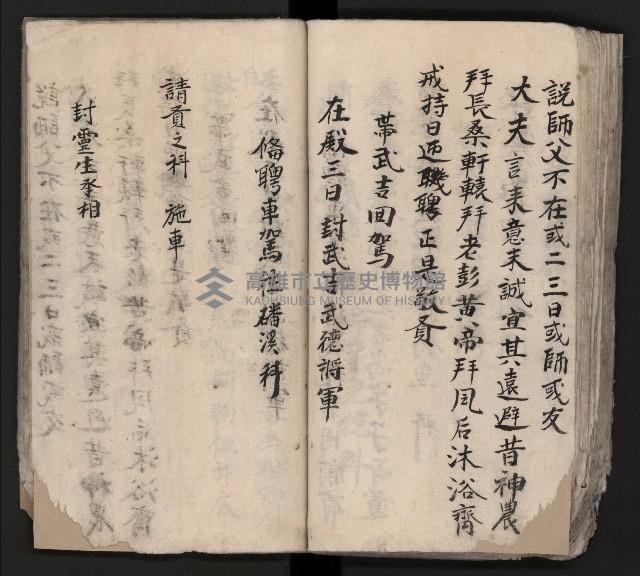 説師父不在或二三日或師或友
大夫言来意未誠宜其遠避昔神農
拜長桑軒轅拜老彭黃帝拜風后沐浴齊
戒持日迎聘正是敬賁
帶武吉回駕
在殿三日封武吉武德將軍
俻聘車駕往磻溪科
請賁之科 施車
封靈坮丞相
高雄市立歷史博物館
KAOHSIUNG MUSEUM OF HISTORY